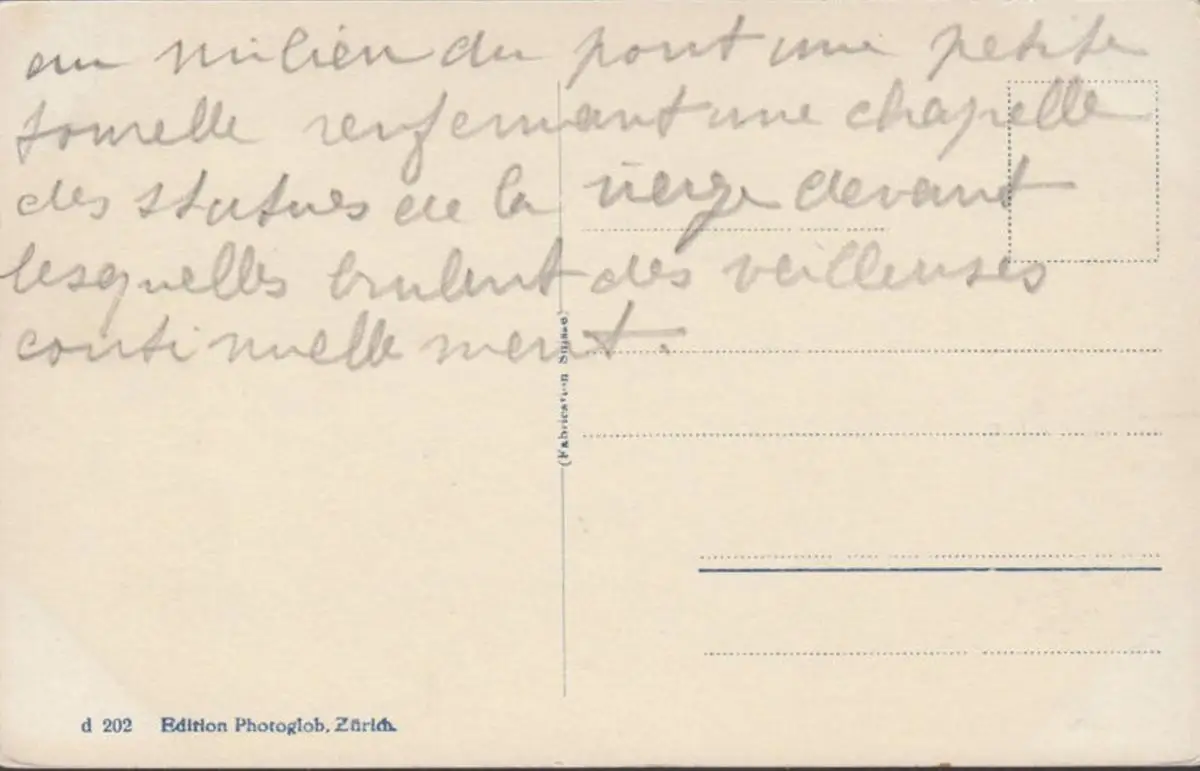 au milieu du pont une petite
tourelle renfermant une chapelle
des statues de la vierge devant
lesquelles brulent des veilleuses
continuellement.
(Fabrication Suisse)
d 202 Edition Photoglob, Zürich.